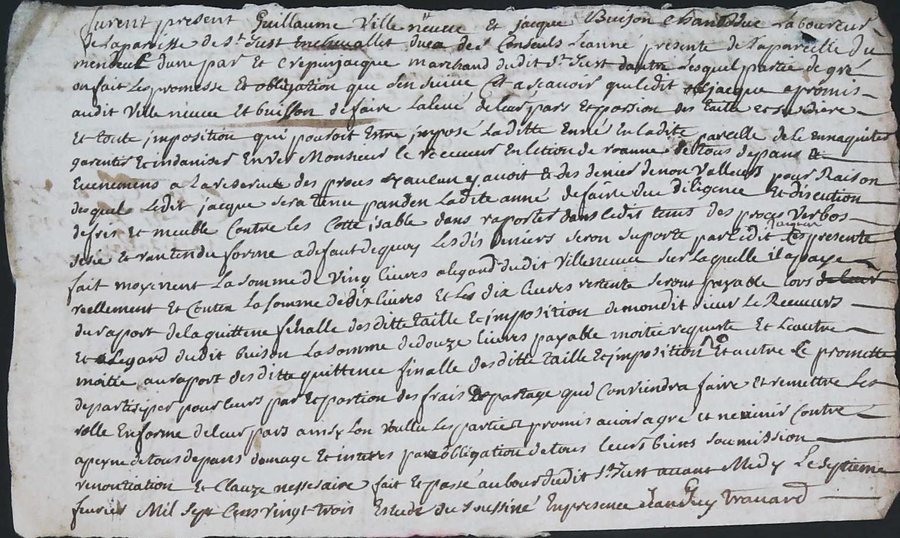 furent present Guillaume Ville neuve et jacque Buison Laboureur
de la paroisse de St Just en chevallet des Consuls Leanné presente de la pareille du
mendeut dune par et Crepin jacque marchand dudit St Just dautre Lesquil partie de gré
on fait Les promesse Et obligation que Sen Suive Cet a scavoir que Ledit jacque a promis
audit Ville neuve et buison de faire La levé de leur pars Et portion des taile et
Et toute jmposition qui pouroit Estre jmposé Laditte Enné En Ladite pareille de
garentir Et indaniser Enver Monsieur le receveur En Letion de roanne de tous depans Et
Evenemens a La reserve des procus avoit Et des denier de non Valleurs pour Raison
desquil Ledit jacque sera tenu panden Ladite anné de faire due diligence Et discution
de fris et meuble Contre les Cotte dans raporter dans Ledit tems des proces Verbos
forme a defaut de quoy Les dis deniers seron suporté par Ledit jacque Les presente
fait moyenent La somme de Ving Livres a Legard dudit Villeneuve sur La quelle il a payé
reellement Et Conten La somme de dix Livres et Les dix Livres restente serons payable Lors
du raport de la quittene finalle des ditte taille Et jmposition de mondit sieur Le Receveurs
Et a Legard dudit buison La somme de douze Livres payable moitié Et Lautre
moitié au raport des ditte quittence finalle des ditte taille Et jmposition Et autre Ce promette
de partisiper pour Leurs par Et portion des frais De partage quil Conviendra faire Et remettre Les
rolle En forme de leur pars ainsy Lon Voullu Les partie Et promis avoir agré et ne venir Contre
a peyne de tous depans domage Et interes par obligation de tous Leurs biens soumission
renontiation Et Clauze nessesaire fait Et passé au bour dudit St Just avant Midy Le septieme
fevrier Mil Sept Cens vingt trois Estude du Soussiné En presence